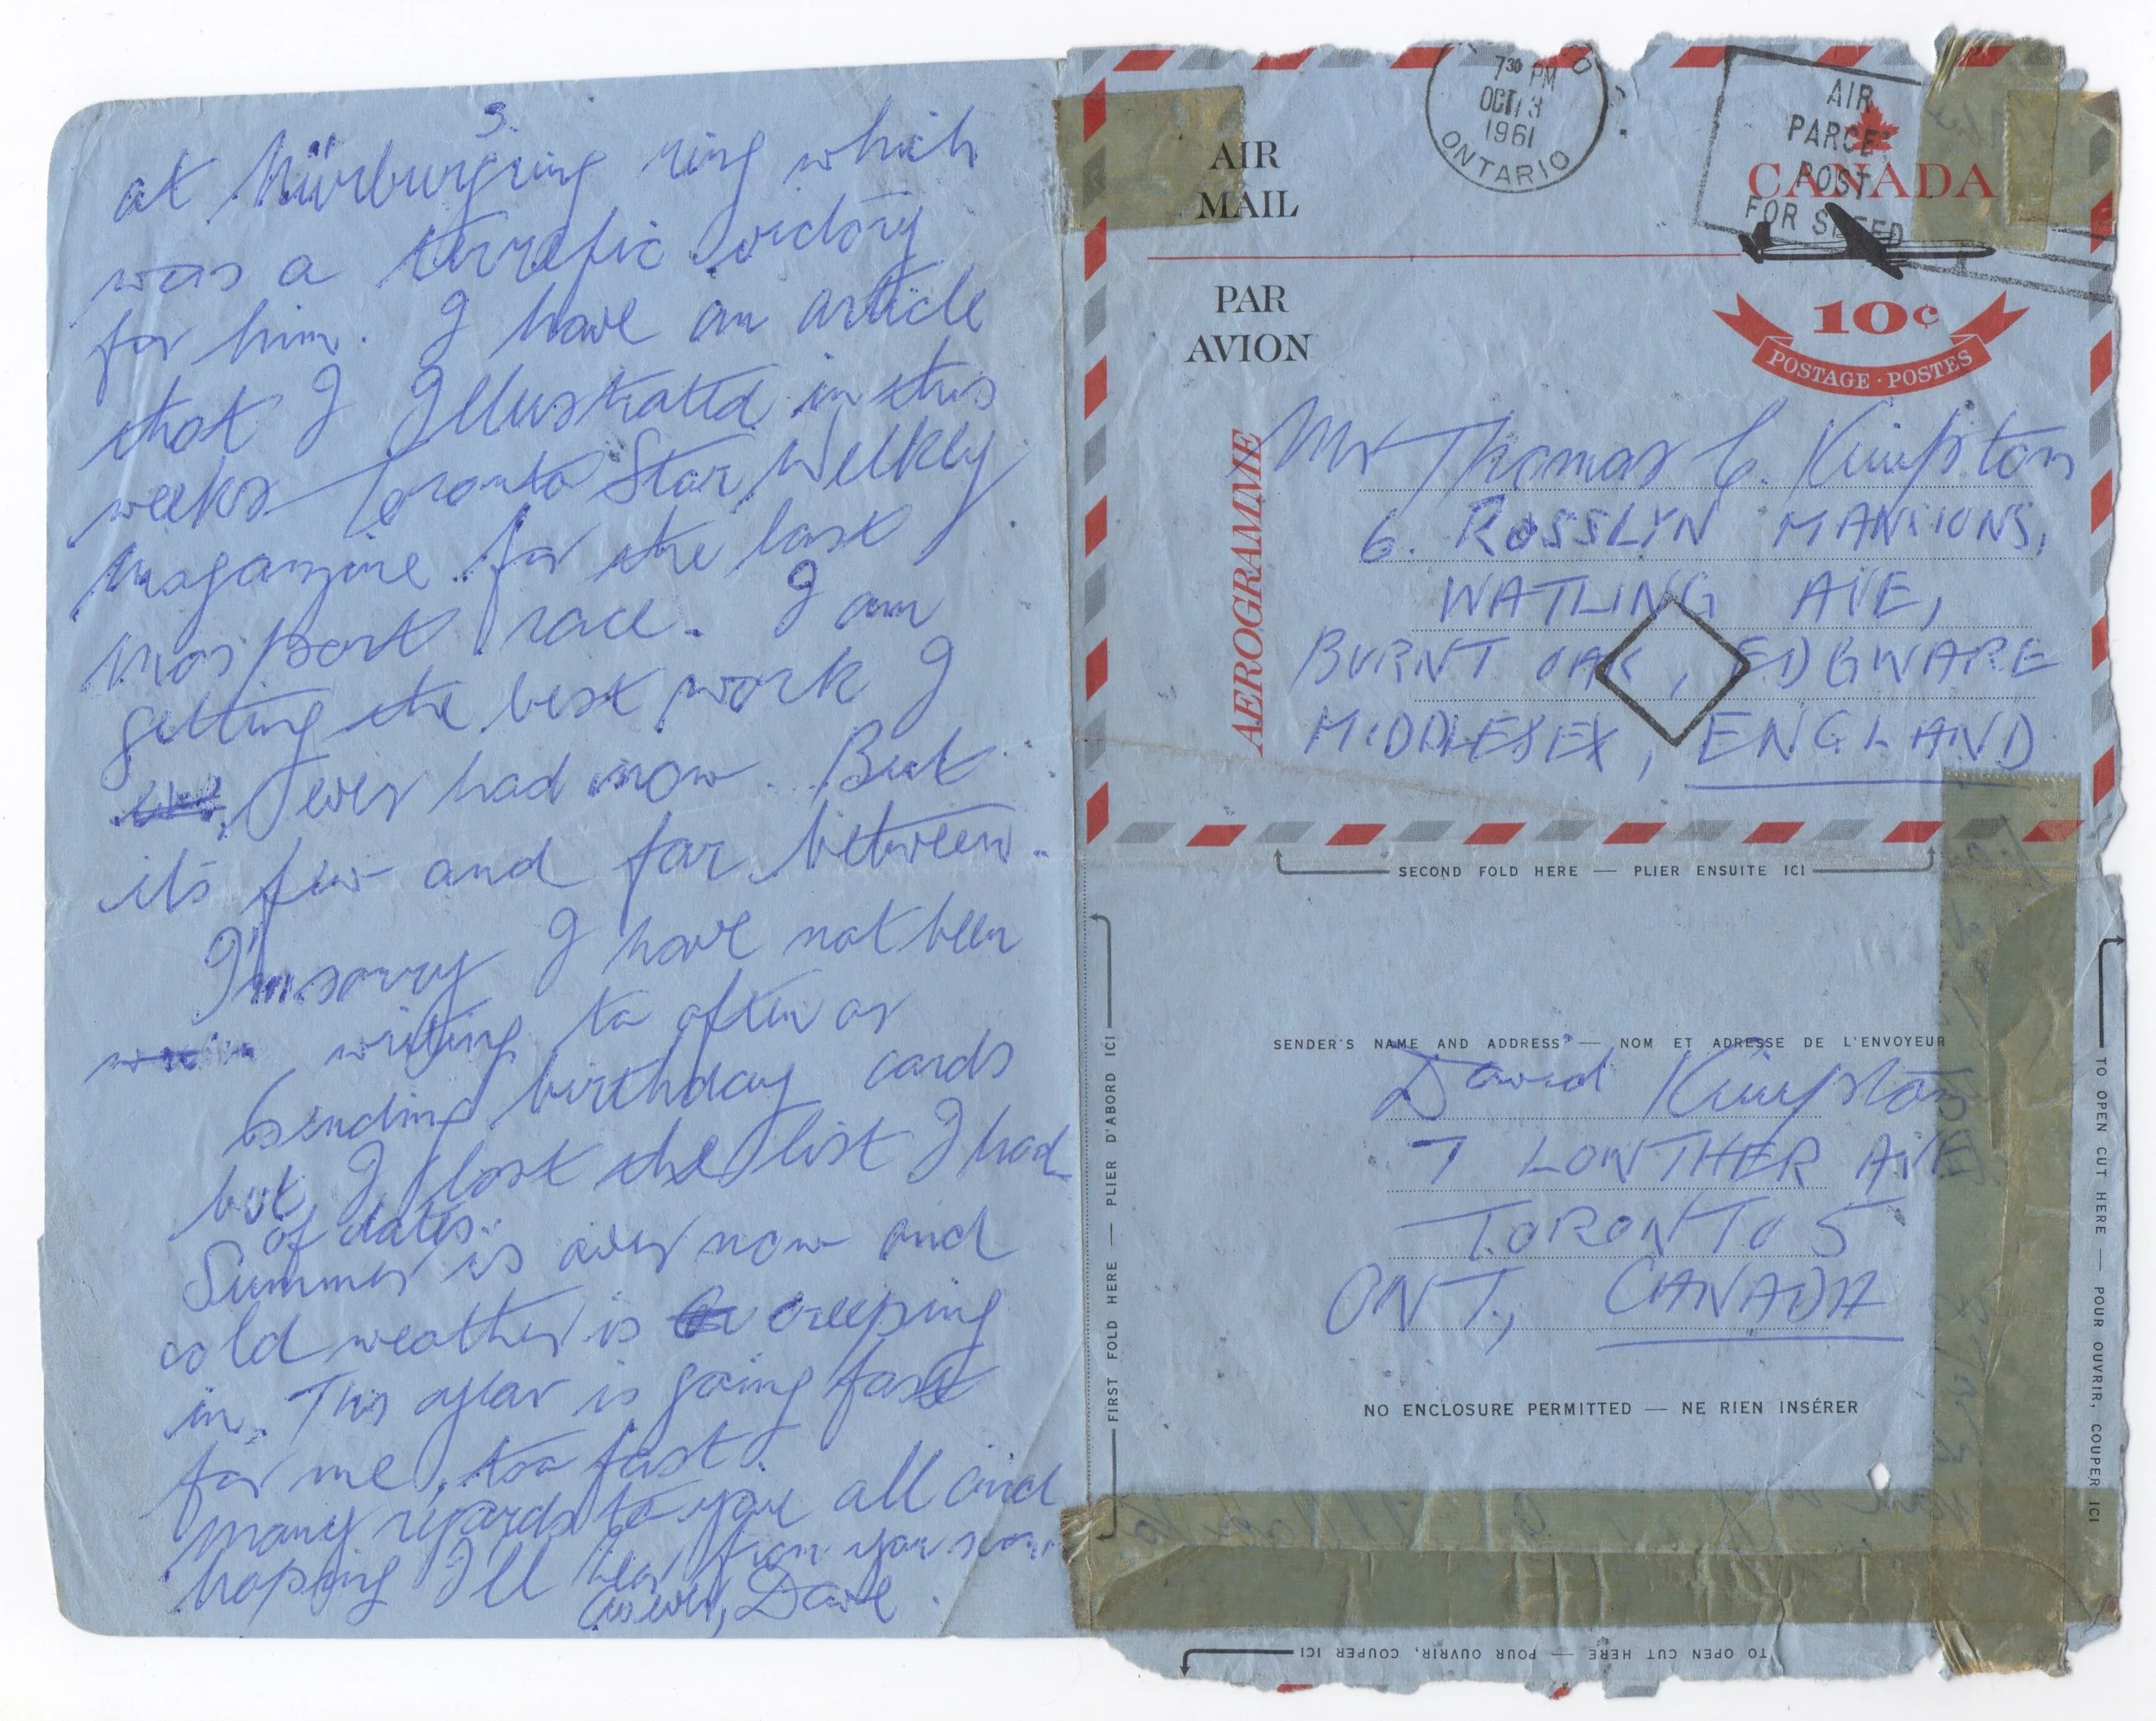 3.
at Nürburgring ring which
was a terrefic victory
for him. I have an article
that I Illustrated in this
weeks Toronto Star Weekly
magazine for the last
mosport race. I am
getting the best work I
ever had now. But
it's few and far between.
I'm sorry I have not been
writing to often or
sending birthday cards
but I lost the list I had
of dates.
Summer is over now and
cold weather is creeping
in. This year is going fast
for me, too fast.
many regards to you all and
hoping I'll hear from you soon
as ever, Dave.
7³⁰ PM
OCT 13
1961
ONTARIO
AIR
PARCEL
POST
FOR SPEED
AIR
MAIL
CANADA
PAR
AVION
10¢
POSTAGE · POSTES
AEROGRAMME
Mr Thomas C. Kimpton
6. ROSSLYN MANSIONS,
WATLING AVE,
BURNT OAK, EDGWARE
MIDDLESEX, ENGLAND
SECOND FOLD HERE — PLIER ENSUITE ICI
FIRST FOLD HERE — PLIER D'ABORD ICI
SENDER'S NAME AND ADDRESS — NOM ET ADRESSE DE L'ENVOYEUR
David Kimpton
7 LOWTHER AVE
TORONTO 5
ONT., CANADA
NO ENCLOSURE PERMITTED — NE RIEN INSÉRER
TO OPEN CUT HERE — POUR OUVRIR, COUPER ICI
TO OPEN CUT HERE — POUR OUVRIR, COUPER ICI